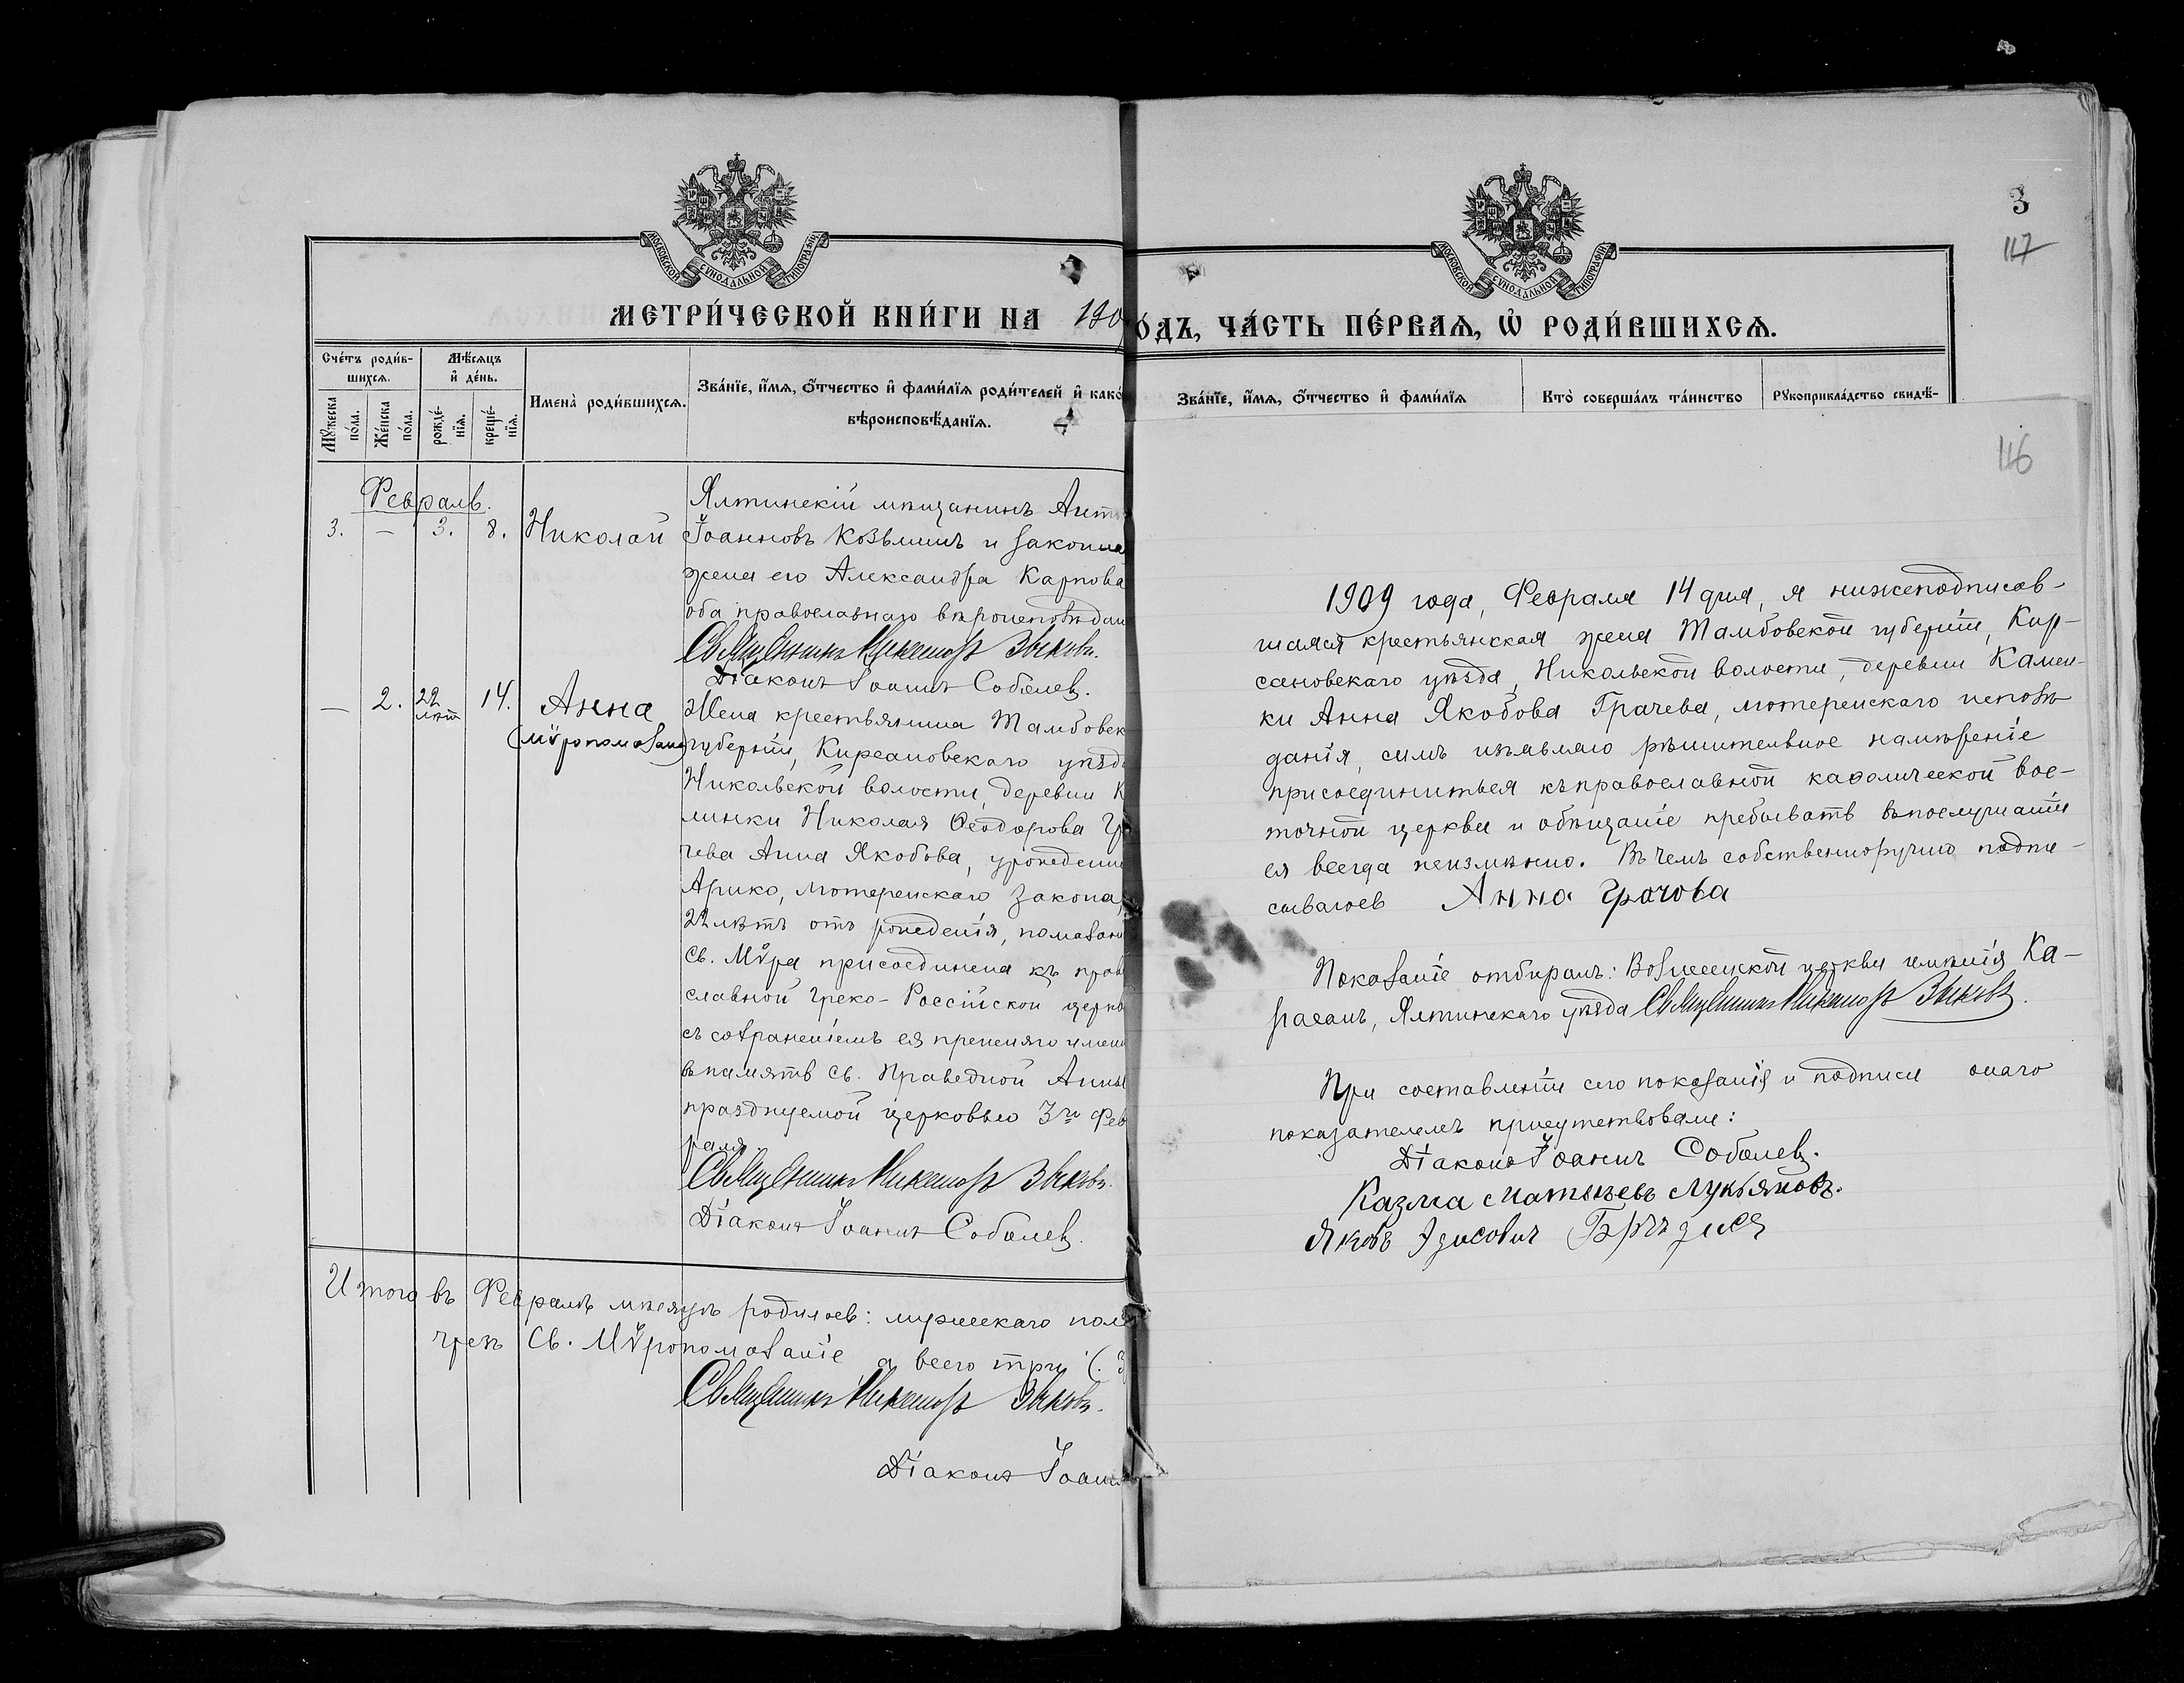 МОСКОВСКОЙ СУНОДАЛЬНОЙ ТИПОГРАФІИ
МЕТРИ́ЧЕСКОЙ КНИ́ГИ НА 190
Сче́тъ роди́в-
шихсѧ.
Мѣ́сѧцъ
и҆ де́нь.
Мꙋ́жеска
по́ла.
Же́нска
по́ла.
рожде́-
нїѧ.
креще́-
нїѧ.
Имена̀ роди́вшихсѧ.
Зва́нїе, и҆́мѧ, ѻ҆́тчество и҆ фами́лїѧ роди́телей и҆ како́
вѣроисповѣ́данїѧ.
Февраль.
3. — 3. 8. Николай
Ялтинскій мѣщанинъ Ант
Іоанновъ Козьминъ и законна
жена его Александра Карпова
оба православнаго вѣроисповѣдан
Священникъ Никаноръ Зыковъ.
Діаконъ Іоаннъ Соболевъ.
— 2. 22 лѣт 14. Анна
(мѵропомазана)
Жена крестьянина Тамбовск
губерніи, Кирсановскаго уѣзд
Никольской волости, деревни К
минки Николая Ѳеодорова Гр
чева Анна Якобова, урожденн
Арико, лютеранскаго закона,
22 лѣтъ отъ рожденія, помазані
Св. Мѵра присоединена къ прав
славной Греко-Россійской церкв
съ сохраненіемъ ея прежняго имени
въ память Св. Праведной Анны
празднуемой церковью 3го Фев
раля
Священникъ Никаноръ Зыковъ.
Діаконъ Іоаннъ Соболевъ.
Итого въ Февралѣ мѣсяцѣ родилось: мужескаго пола
чрезъ Св. Мѵропомазаніе а всего три (.3
Священникъ Никаноръ Зыковъ.
Діаконъ Іоанн
3
117
МОСКОВСКОЙ СУНОДАЛЬНОЙ ТИПОГРАФІИ
О́ДЪ, ЧА́СТЬ ПЕ́РВАѦ, Ѽ РОДИ́ВШИХСѦ.
Зва́нїе, и҆́мѧ, ѻ҆́тчество и҆ фами́лїѧ
Кто̀ соверша́лъ та́инство
Рꙋкоприкла́дство свидѣ́-
116
1909 года, Февраля 14 дня, я нижеподписав-
шаяся крестьянская жена Тамбовской губерніи, Кир-
сановскаго уѣзда, Никольской волости, деревни Камен-
ки Анна Якобова Грачева, лютеранскаго исповѣ
данія, симъ изъявляю рѣшительное намѣреніе
присоединиться къ православной каѳолической вос-
точной церкви и обѣщаніе пребывать въ послушаніи
ея всегда неизмѣнно. Въ чемъ собственноручно подпи-
сываюсь Анна Грачова
Показаніе отбиралъ: Вознесенской церкви имѣнія Ка-
расанъ, Ялтинскаго уѣзда Священникъ Никаноръ Зыковъ.
При составленіи сего показанія и подписи онаго
показателемъ присутствовали:
Діаконъ Іоаннъ Соболевъ.
Казма Матвѣевъ Лукьяновъ.
Якобъ